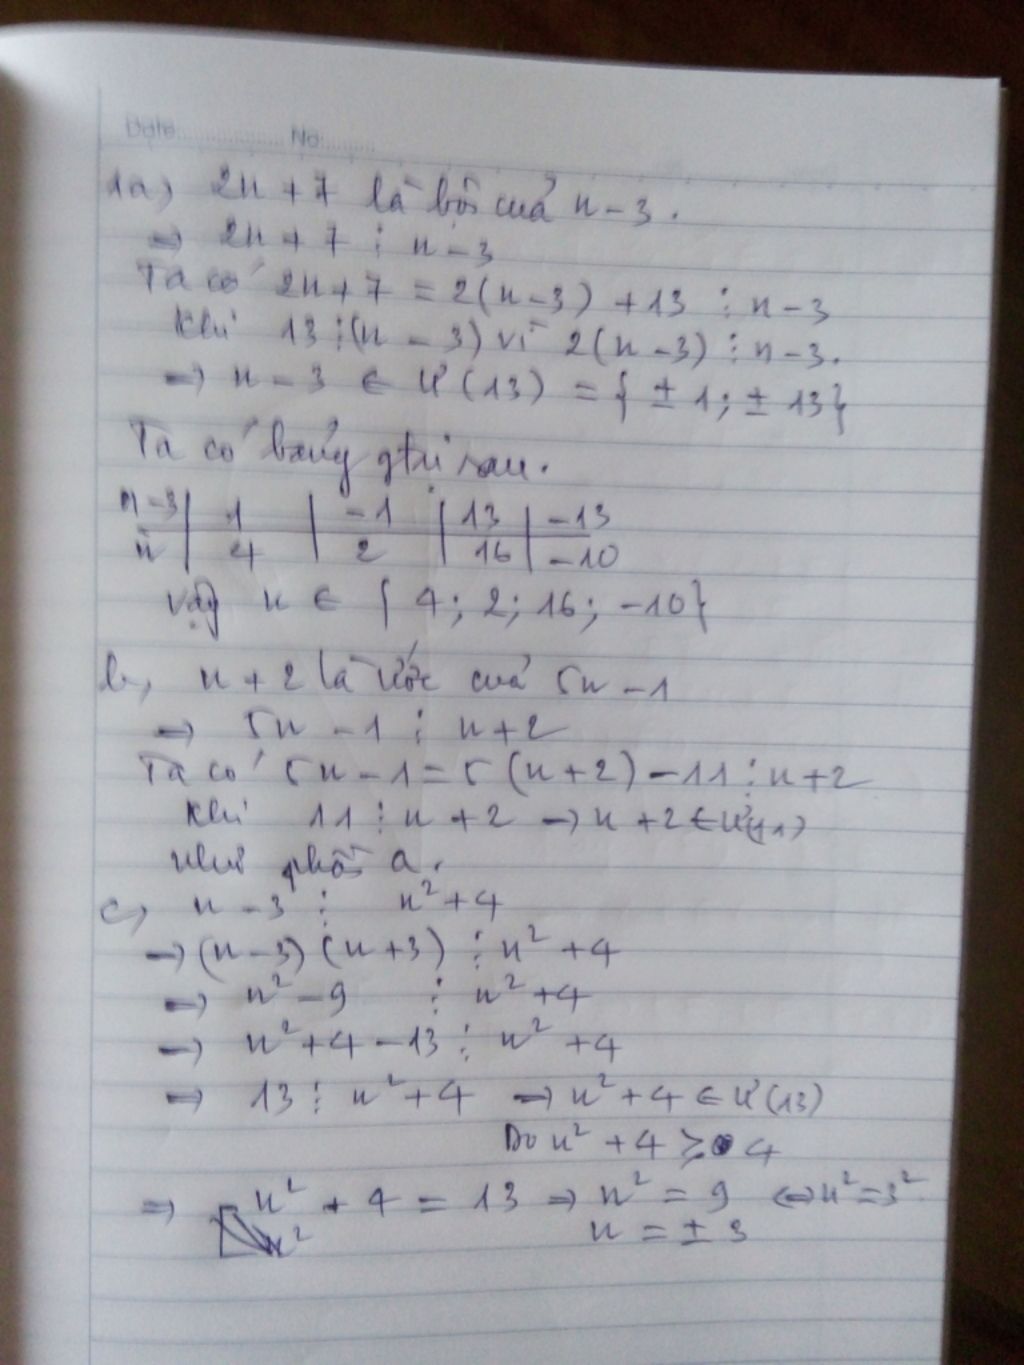 Date No
1a, 2n + 7 là bội của n - 3.
⇒ 2n + 7 ⋮ n - 3
Ta có 2n + 7 = 2(n - 3) + 13 ⋮ n - 3
Khi 13 ⋮ (n - 3) vì 2(n - 3) ⋮ n - 3.
⇒ n - 3 ∈ Ư(13) = { ± 1; ± 13}
Ta có bảng gtrị sau.
n - 3 | 1 | -1 | 13 | -13
n | 4 | 2 | 16 | -10
Vậy n ∈ { 4; 2; 16; -10}
b, n + 2 là ước của 5n - 1
⇒ 5n - 1 ⋮ n + 2
Ta có 5n - 1 = 5(n + 2) - 11 ⋮ n + 2
Khi 11 ⋮ n + 2 → n + 2 ∈ Ư(11)
Như phần a.
c, n - 3 ⋮ n² + 4
→ (n - 3)(n + 3) ⋮ n² + 4
⇒ n² - 9 ⋮ n² + 4
→ n² + 4 - 13 ⋮ n² + 4
⇒ 13 ⋮ n² + 4 ⇒ n² + 4 ∈ Ư(13)
Do n² + 4 ≥ 4
⇒ n² + 4 = 13 ⇒ n² = 9 ⇔ n² = 3²
n = ± 3